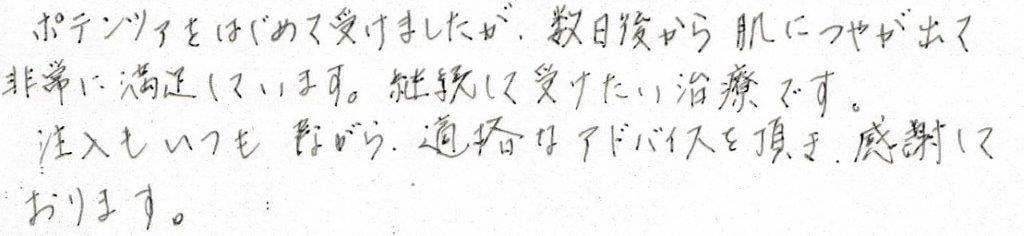 ポテンツァをはじめて受けましたが、数日後から肌につやが出て
非常に満足しています。継続して受けたい治療です。
注入もいつもながら、適格なアドバイスを頂き、感謝して
おります。